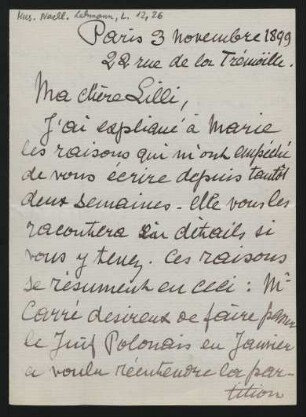 Mus. Nachl. Lehmann, L. 12,26
Paris 3 novembre 1899
22 rue de la Trémoille.
Ma chère Lilli,
J'ai expliqué à Marie
les raisons qui m'ont empêché
de vous écrire depuis tantôt
deux semaines. Elle vous les
racontera en détails si
vous y tenez. Ces raisons
se résument en ceci : Mr
Carré désireux de faire passer
le Juif Polonais en Janvier
a voulu réentendre la par-
tition